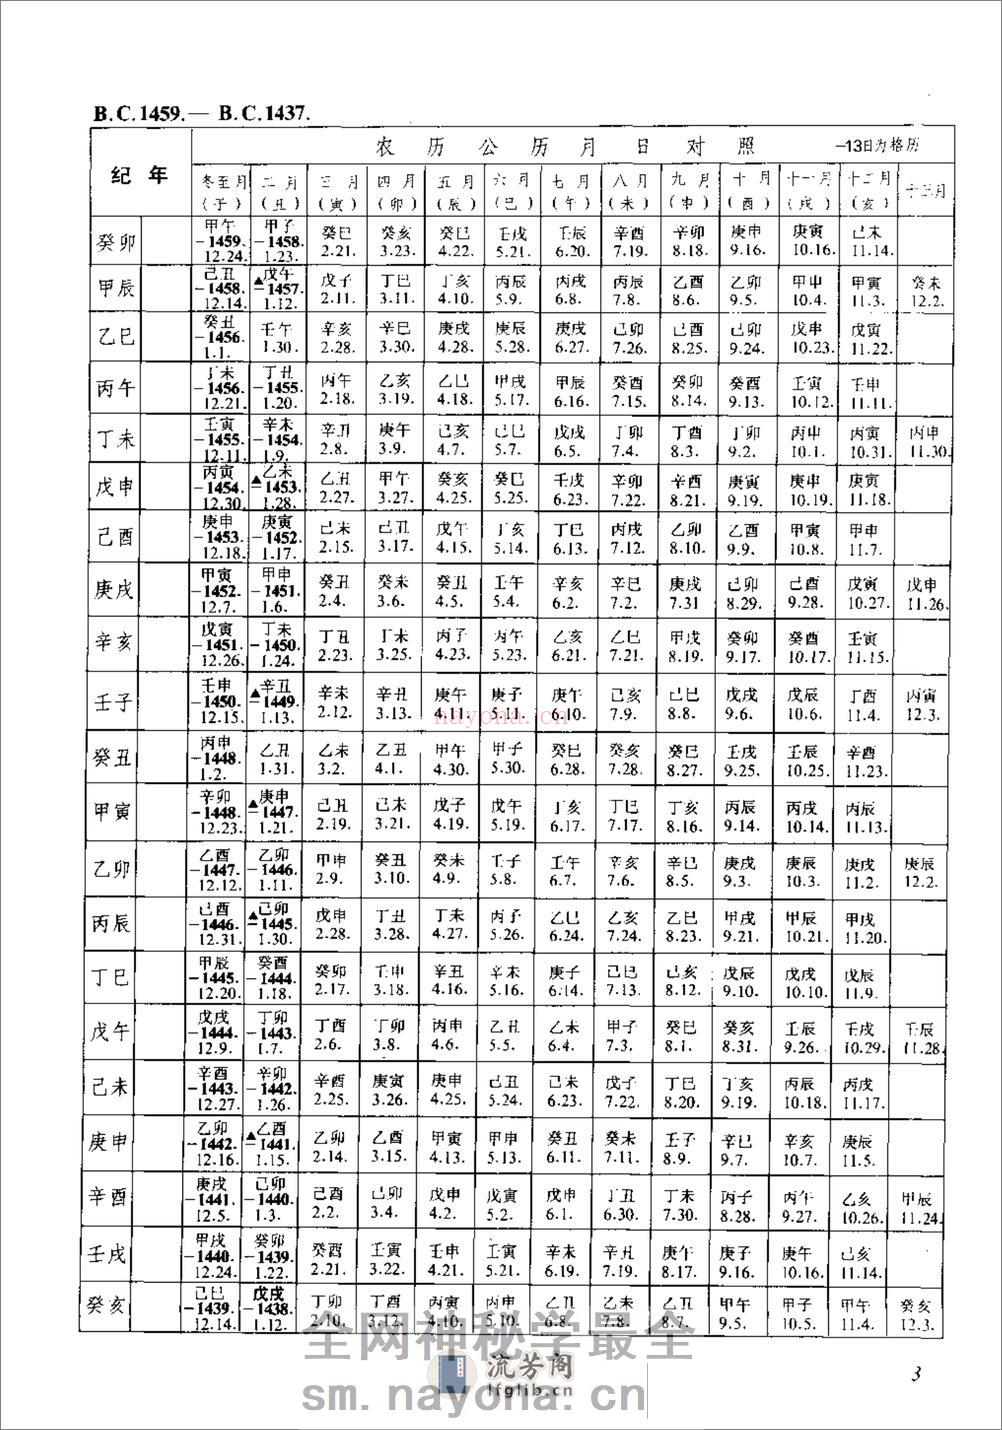 B.C.1459.— B.C.1437.
纪 年
农 历 公 历 月 日 对 照 —13日为格历
冬至月 二月 三月 四月 五月 六月 七月 八月 九月 十月 十一月 十二月 十三月
(子) (丑) (寅) (卯) (辰) (巳) (午) (未) (申) (酉) (戌) (亥)
癸卯 甲午 甲子 癸巳 癸亥 癸巳 壬戌 壬辰 辛酉 辛卯 庚申 庚寅 己未
-1459. -1458.
12.24. 1.23. 2.21. 3.23. 4.22. 5.21. 6.20. 7.19. 8.18. 9.16. 10.16. 11.14.
甲辰 己丑 ▲戊午 戊子 丁巳 丁亥 丙辰 丙戌 丙辰 乙酉 乙卯 甲申 甲寅 癸未
-1458. -1457.
12.14. 1.12. 2.11. 3.11. 4.10. 5.9. 6.8. 7.8. 8.6. 9.5. 10.4. 11.3. 12.2.
乙巳 癸丑 壬午 辛亥 辛巳 庚戌 庚辰 庚戌 己卯 己酉 己卯 戊申 戊寅
-1456.
1.1. 1.30. 2.28. 3.30. 4.28. 5.28. 6.27. 7.26. 8.25. 9.24. 10.23. 11.22.
丙午 丁未 丁丑 丙午 乙亥 乙巳 甲戌 甲辰 癸酉 癸卯 癸酉 壬寅 壬申
-1456. -1455.
12.21. 1.20. 2.18. 3.19. 4.18. 5.17. 6.16. 7.15. 8.14. 9.13. 10.12. 11.11.
丁未 壬寅 辛未 辛丑 庚午 己亥 己巳 戊戌 丁卯 丁酉 丁卯 丙申 丙寅 丙申
-1455. -1454.
12.11. 1.9. 2.8. 3.9. 4.7. 5.7. 6.5. 7.4. 8.3. 9.2. 10.1. 10.31. 11.30.
戊申 丙寅 ▲乙未 乙丑 甲午 癸亥 癸巳 壬戌 辛卯 辛酉 庚寅 庚申 庚寅
-1454. -1453.
12.30. 1.28. 2.27. 3.27. 4.25. 5.25. 6.23. 7.22. 8.21. 9.19. 10.19. 11.18.
己酉 庚申 庚寅 己未 己丑 戊午 丁亥 丁巳 丙戌 乙卯 乙酉 甲寅 甲申
-1453. -1452.
12.18. 1.17. 2.15. 3.17. 4.15. 5.14. 6.13. 7.12. 8.10. 9.9. 10.8. 11.7.
庚戌 甲寅 甲申 癸丑 癸未 癸丑 壬午 辛亥 辛巳 庚戌 己卯 己酉 戊寅 戊申
-1452. -1451.
12.7. 1.6. 2.4. 3.6. 4.5. 5.4. 6.2. 7.2. 7.31 8.29. 9.28. 10.27. 11.26.
辛亥 戊寅 丁未 丁丑 丁未 丙子 丙午 乙亥 乙巳 甲戌 癸卯 癸酉 壬寅
-1451. -1450.
12.26. 1.24. 2.23. 3.25. 4.23. 5.23. 6.21. 7.21. 8.19. 9.17. 10.17. 11.15.
壬子 壬申 ▲辛丑 辛未 辛丑 庚午 庚子 庚午 己亥 己巳 戊戌 戊辰 丁酉 丙寅
-1450. -1449.
12.15. 1.13. 2.12. 3.13. 4.11. 5.11. 6.10. 7.9. 8.8. 9.6. 10.6. 11.4. 12.3.
癸丑 丙申 乙丑 乙未 乙丑 甲午 甲子 癸巳 癸亥 癸巳 壬戌 壬辰 辛酉
-1448.
1.2. 1.31. 3.2. 4.1. 4.30. 5.30. 6.28. 7.28. 8.27. 9.25. 10.25. 11.23.
甲寅 辛卯 ▲庚申 己丑 己未 戊子 戊午 丁亥 丁巳 丁亥 丙辰 丙戌 丙辰
-1448. -1447.
12.23. 1.21. 2.19. 3.21. 4.19. 5.19. 6.17. 7.17. 8.16. 9.14. 10.14. 11.13.
乙卯 乙酉 乙卯 甲申 癸丑 癸未 壬子 壬午 辛亥 辛巳 庚戌 庚辰 庚戌 庚辰
-1447. -1446.
12.12. 1.11. 2.9. 3.10. 4.9. 5.8. 6.7. 7.6. 8.5. 9.3. 10.3. 11.2. 12.2.
丙辰 己酉 ▲己卯 戊申 丁丑 丁未 丙子 乙巳 乙亥 乙巳 甲戌 甲辰 甲戌
-1446. -1445.
12.31. 1.30. 2.28. 3.28. 4.27. 5.26. 6.24. 7.24. 8.23. 9.21. 10.21. 11.20.
丁巳 甲辰 癸酉 癸卯 壬申 辛丑 辛未 庚子 己巳 己亥 戊辰 戊戌 戊辰
-1445. -1444.
12.20. 1.18. 2.17. 3.18. 4.16. 5.16. 6.14. 7.13. 8.12. 9.10. 10.10. 11.9.
戊午 戊戌 丁卯 丁酉 丁卯 丙申 乙丑 乙未 甲子 癸巳 癸亥 壬辰 壬戌 壬辰
-1444. -1443.
12.9. 1.7. 2.6. 3.8. 4.6. 5.5. 6.4. 7.3. 8.1. 8.31. 9.26. 10.29. 11.28.
己未 辛酉 辛卯 辛酉 庚寅 庚申 己丑 己未 戊子 丁巳 丁亥 丙辰 丙戌
-1443. -1442.
12.27. 1.26. 2.25. 3.26. 4.25. 5.24. 6.23. 7.22. 8.20. 9.19. 10.18. 11.17.
庚申 乙卯 ▲乙酉 乙卯 乙酉 甲寅 甲申 癸丑 癸未 壬子 辛巳 辛亥 庚辰
-1442. -1441.
12.16. 1.15. 2.14. 3.15. 4.13. 5.13. 6.11. 7.11. 8.9. 9.7. 10.7. 11.5.
辛酉 庚戌 己卯 己酉 己卯 戊申 戊寅 戊申 丁丑 丁未 丙子 丙午 乙亥 甲辰
-1441. -1440.
12.5. 1.3. 2.2. 3.4. 4.2. 5.2. 6.1. 6.30. 7.30. 8.28. 9.27. 10.26. 11.24.
壬戌 甲戌 癸卯 癸酉 壬寅 壬申 壬寅 辛未 辛丑 庚午 庚子 庚午 己亥
-1440. -1439.
12.24. 1.22. 2.21. 3.22. 4.21. 5.21. 6.19. 7.19. 8.17. 9.16. 10.16. 11.14.
癸亥 己巳 戊戌 丁卯 丁酉 丙寅 丙申 乙丑 乙未 乙丑 甲午 甲子 甲午 癸亥
-1439. -1438.
12.14. 1.12. 2.10. 3.12. 4.10. 5.10. 6.8. 7.8. 8.7. 9.5. 10.5. 11.4. 12.3.
nayona.cn
全网神秘学最全
流芳阁
lfglib.cn
sm.nayona.cn
3